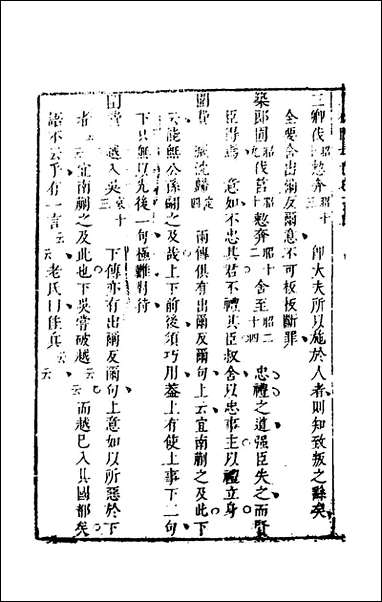 三卿伐 昭十 憖奔 昭十三 卽大夫所以施於人者則知致叛之繇矣
全要舍出爾反爾意不可板板斷罪
築郎囿 昭九 伐莒 昭十 憖奔 昭十二 舍至 昭二十四 忠禮之道强臣失之而賢
臣得焉 意如不忠其君不禮其臣叔舍以忠事主以禮立身
圍費 歸 定 兩傳俱有出爾反爾句上云宜南蒯之及此下
云能無公孫 之及哉上下前後須巧用蓋上有使上事下二句
下只無以先後一句極難對待
圍費 越入吳 哀十三 下傳亦有出爾反爾句上意如以所惡於下
者 云云 宜南蒯之及此也下吳嘗破越 云云 而越已入其國都矣
語不云乎有一言 云云 老氏曰佳兵 云云